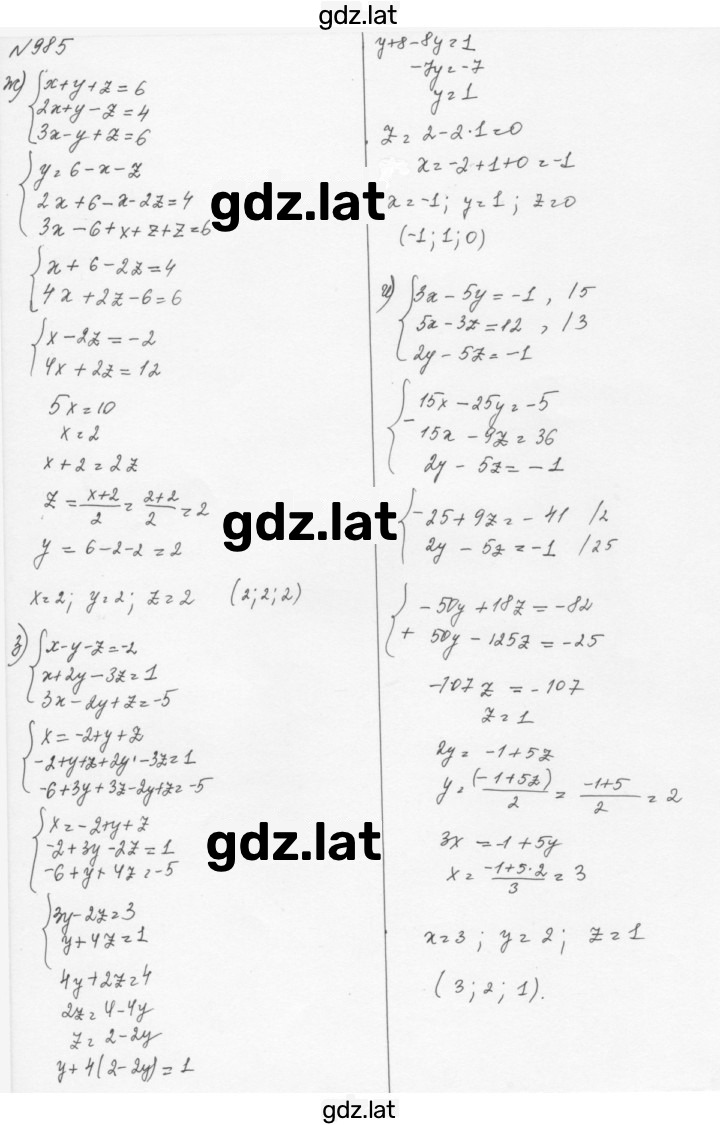 gdz.lat
№985
ж) { x+y+z=6
2x+y-z=4
3x-y+z=6
{ y=6-x-z
2x+6-x-2z=4
3x-6+x+z+z=6
gdz.lat
{ x+6-2z=4
4x+2z-6=6
{ x-2z=-2
4x+2z=12
5x=10
x=2
x+2=2z
z=\frac{x+2}{2}=\frac{2+2}{2}=2
gdz.lat
y=6-2-2=2
x=2; y=2; z=2 (2;2;2)
з) { x-y-z=-2
x+2y-3z=1
3x-2y+z=-5
{ x=-2+y+z
-2+y+z+2y-3z=1
-6+3y+3z-2y+z=-5
{ x=-2+y+z
-2+3y-2z=1
-6+y+4z=-5
gdz.lat
{ 3y-2z=3
y+4z=1
4y+2z=4
2z=4-4y
z=2-2y
y+4(2-2y)=1
y+8-8y=1
-7y=-7
y=1
z=2-2·1=0
x=-2+1+0=-1
x=-1; y=1; z=0
(-1;1;0)
и) { 3x-5y=-1, /5
5x-3z=12, /3
2y-5z=-1
{ - 15x-25y=-5
15x-9z=36
2y-5z=-1
{ -25+9z=-41 /2
2y-5z=-1 /25
{ -50y+18z=-82
+ 50y-125z=-25
-107z=-107
z=1
2y=-1+5z
y=\frac{(-1+5z)}{2}=\frac{-1+5}{2}=2
3x=-1+5y
x=\frac{-1+5·2}{3}=3
x=3; y=2; z=1
(3;2;1).
gdz.lat